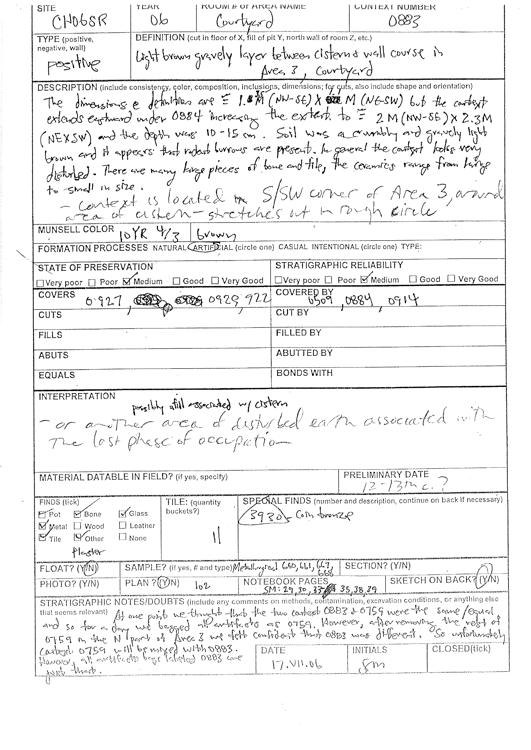 SITE YEAR ROOM # or AREA NAME CONTEXT NUMBER
CH06SR 06 Courtyard 0883
TYPE (positive, negative, wall) DEFINITION (cut in floor of X, fill of pit Y, north wall of room Z, etc.)
positive Light brown gravely layer between cistern & wall course in
Area 3, Courtyard
DESCRIPTION (include consistency, color, composition, inclusions, dimensions; for cuts, also include shape and orientation)
The dimensions & definitions are M (NN-SE) X M (NE-SW) but the context
extends eastward under 0884 increasing the extent to 2 M (NN-SE) X 2.3M
(NEXSW) and the depth was 10-15 cm. Soil was a crumbly and gravely light
brown and it appears that rodent burrows are present. In general the context looks very
disturbed. There are many large pieces of bone and tile, the ceramics range from large
to small in size.
- Context is located in S/SW corner of Area 3, around
area of cistern - stretches out in rough circle
MUNSELL COLOR 10YR 4/3 brown
FORMATION PROCESSES NATURAL ARTIFICIAL (circle one) CASUAL INTENTIONAL (circle one) TYPE:
STATE OF PRESERVATION STRATIGRAPHIC RELIABILITY
Very poor Poor Medium Good Very Good Very poor Poor Medium Good Very Good
COVERS 0927, 0929, 922 COVERED BY 0509, 0884, 0914
CUTS CUT BY
FILLS FILLED BY
ABUTS ABUTTED BY
EQUALS BONDS WITH
INTERPRETATION
possibly still associated w/ cistern
- or another area of disturbed earth associated with
the last phase of occupation
MATERIAL DATABLE IN FIELD? (if yes, specify) PRELIMINARY DATE
12-13th c.?
FINDS (tick) TILE: (quantity buckets?) SPECIAL FINDS (number and description, continue on back if necessary)
Pot Bone Glass 3930 - Coin bronze
Metal Wood Leather
Tile Other None
Plaster
FLOAT? (Y/N) SAMPLE? (if yes, # and type) Metallurgical 660, 661, 667, SECTION? (Y/N)
PHOTO? (Y/N) PLAN? (Y/N) 102 NOTEBOOK PAGES SKETCH ON BACK? (Y/N)
SM: 29, 30, 35, 38, 39
STRATIGRAPHIC NOTES/DOUBTS (include any comments on methods, contamination, excavation conditions, or anything else
that seems relevant) At one point we thought that the two context 0883 & 0759 were the same/equal
and so for a day we bagged all artifacts as 0759. However, after removing the rest of
0759 in the N part of Area 3 we felt confident that 0883 was different. So unfortunately
context 0759 will be mixed with 0883.
However, all artifacts bags labeled 0883 are
just that.
DATE INITIALS CLOSED(tick)
17.VII.06 SM